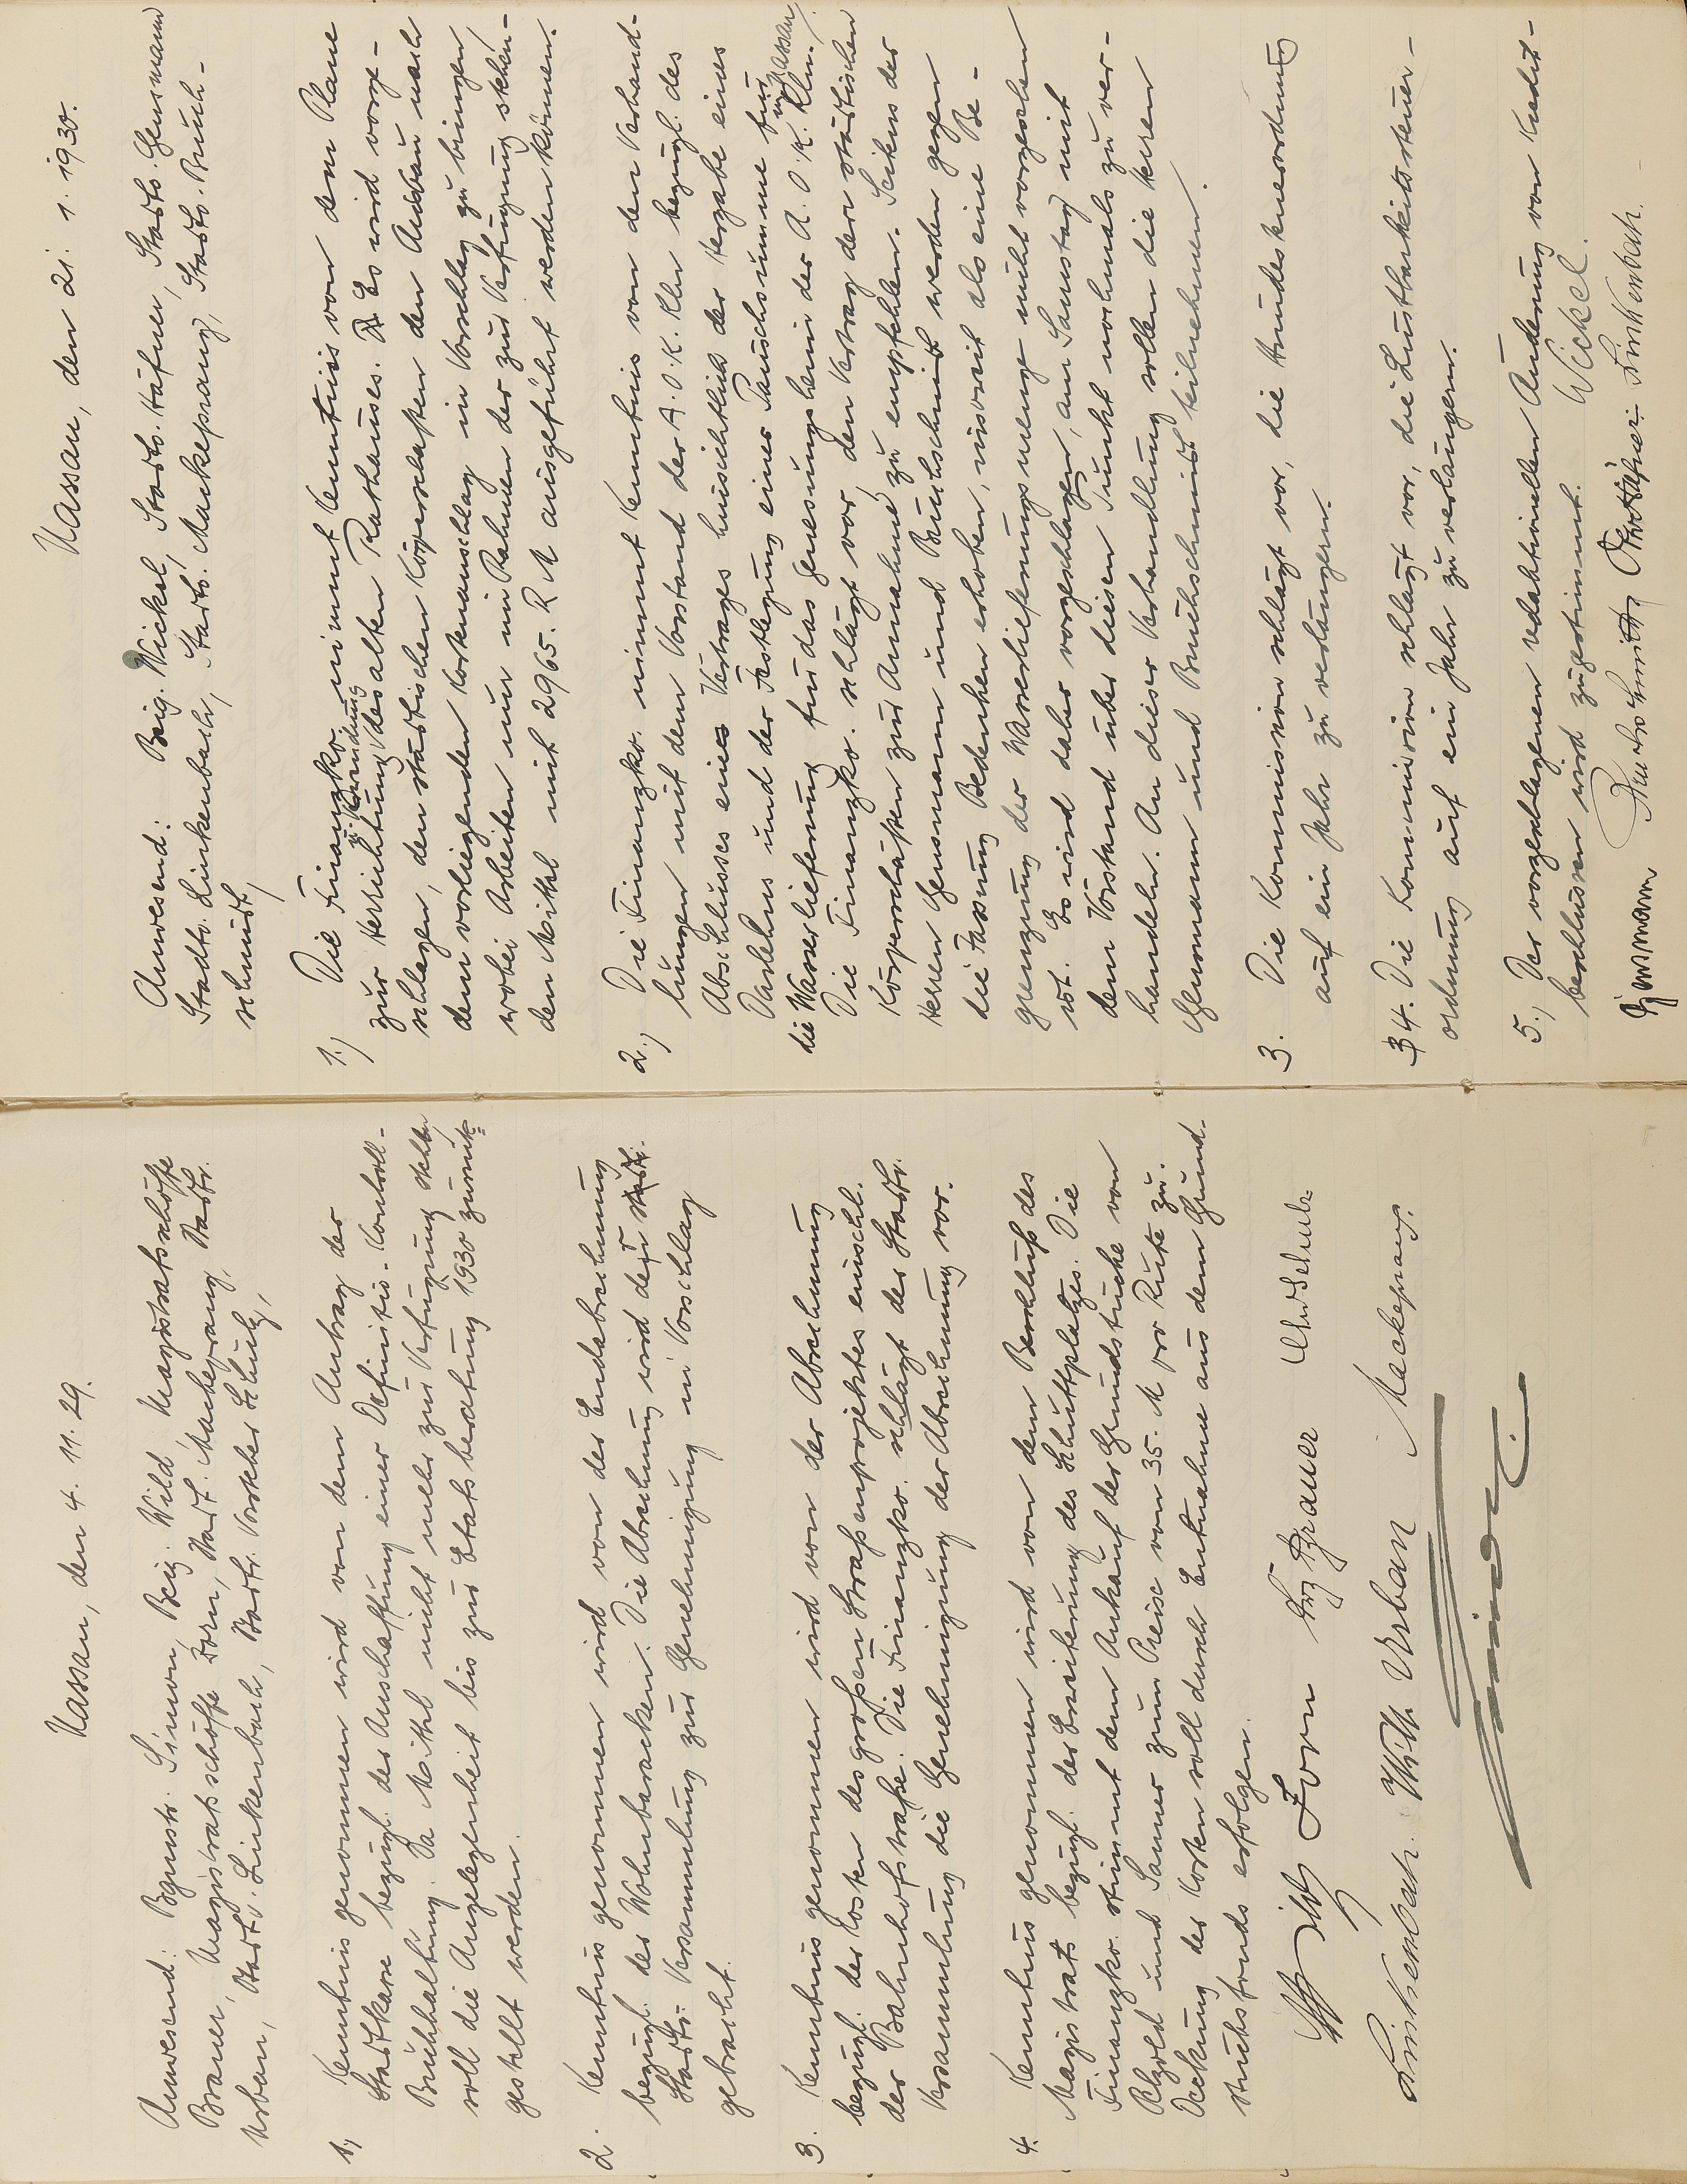 Nassau, den 4. 11. 29.
Anwesend: Bgmstr. Simon, Beig. Wild, Magistratsschöffe
Brauer, Magistratsschöffe Zorn, Stadt. Mackeprang, Stadtv.
Urban, Stadtv. Linkenbach, Stadtv. Vorsteher Schulz,
1., Kentnis genommen wird von dem Antrag der
Stadtkasse bezügl. der Anschaffung einer Definitiv-Kontroll-
Buchhaltung. Da Mittel nicht mehr zur Verfügung stehen
soll die Angelegenheit bis zur Etatsberatung 1930 zurück=
gestellt werden.
2. Kentnis genommen wird von der Endabrechnung
bezügl. der Wohnbaracken. Die Abrechnung wird der
Stadtv. Versammlung zur Genehmigung in Vorschlag
gebracht.
3. Kentnis genommen wird von der Abrechnung
bezügl. der Kosten des großen Straßenprojektes einschl.
der Bahnhofstraße. Die Finanzko. schlägt der Stadtv.
Versammlung die Genehmigung der Abrechnung vor.
4. Kentnis genommen wird von dem Beschluß des
Magistrats bezügl. der Erweiterung des Schuttplatzes. Die
Finanzko. stimmt dem Ankauf der Grundstücke von
und zum Preise von 35. M pro Rute zu.
Deckung der Kosten soll durch Entnahme aus dem Grund-
stücksfonds erfolgen.
Wild Zorn Brauer Schulz
Linkenbach. Wilh Urban Mackeprang.
Nassau, den 21. 1. 1930.
Anwesend: Beig. Wickel, Stadtv. Häfner, Stadtv. Gensmann
Stadtv. Linkenbach, Stadtv. Mackeprang, Stadtv. Buch-
schmidt,
1., Die Finanzko. nimmt Kentnis von dem Plane
zur Herrichtung u. Verwendung des alten Rathauses. Es wird vorge-
schlagen, den städtischen Körperschaften den Ausbau nach
dem vorliegenden Kostenanschlag in Vorschlag zu bringen,
wobei Arbeiten nur im Rahmen der zur Verfügung stehen-
den Mittel mit 2965. R M ausgeführt werden können.
2., Die Finanzko. nimmt Kentnis von den Verhand-
lungen mit dem Vorstand der A. O. K. Kln bezügl. des
Abschlusses eines Vertrages hinsichtlich der Hergabe eines
Darlehns und der Festlegung einer Pauschsumme für
die Wasserlieferung für das Genesungsheim der A. O. K. Kln. in Nassau.
Die Finanzko. schlägt vor, den Vertrag den städtischen
Körperschaften zur Annahme zu empfehlen. Seitens der
Herren Gensmann und Buchschmidt werden gegen
die Fassung Bedenken erhoben, insoweit als eine Be-
grenzung der Wasserlieferungsmenge nicht vorgesehen
ist. Es wird daher vorgeschlagen, am Samstag mit
dem Vorstand über diesen Punkt nochmals zu ver-
handeln. An dieser Verhandlung sollen die Herren
Gensmann und Buchschmidt teilnehmen.
3. Die Kommission schlägt vor, die Hundesteuerordnung
auf ein Jahr zu verlängern.
4. Die Kommission schlägt vor, die Lustbarkeitssteuer-
ordnung auf ein Jahr zu verlängern.
5., Der vorgeschlagenen redaktionellen Änderung von Kredit-
beschlüssen wird zugestimmt. Wickel.
Gensmann Buchschmidt Häfner Linkenbach.